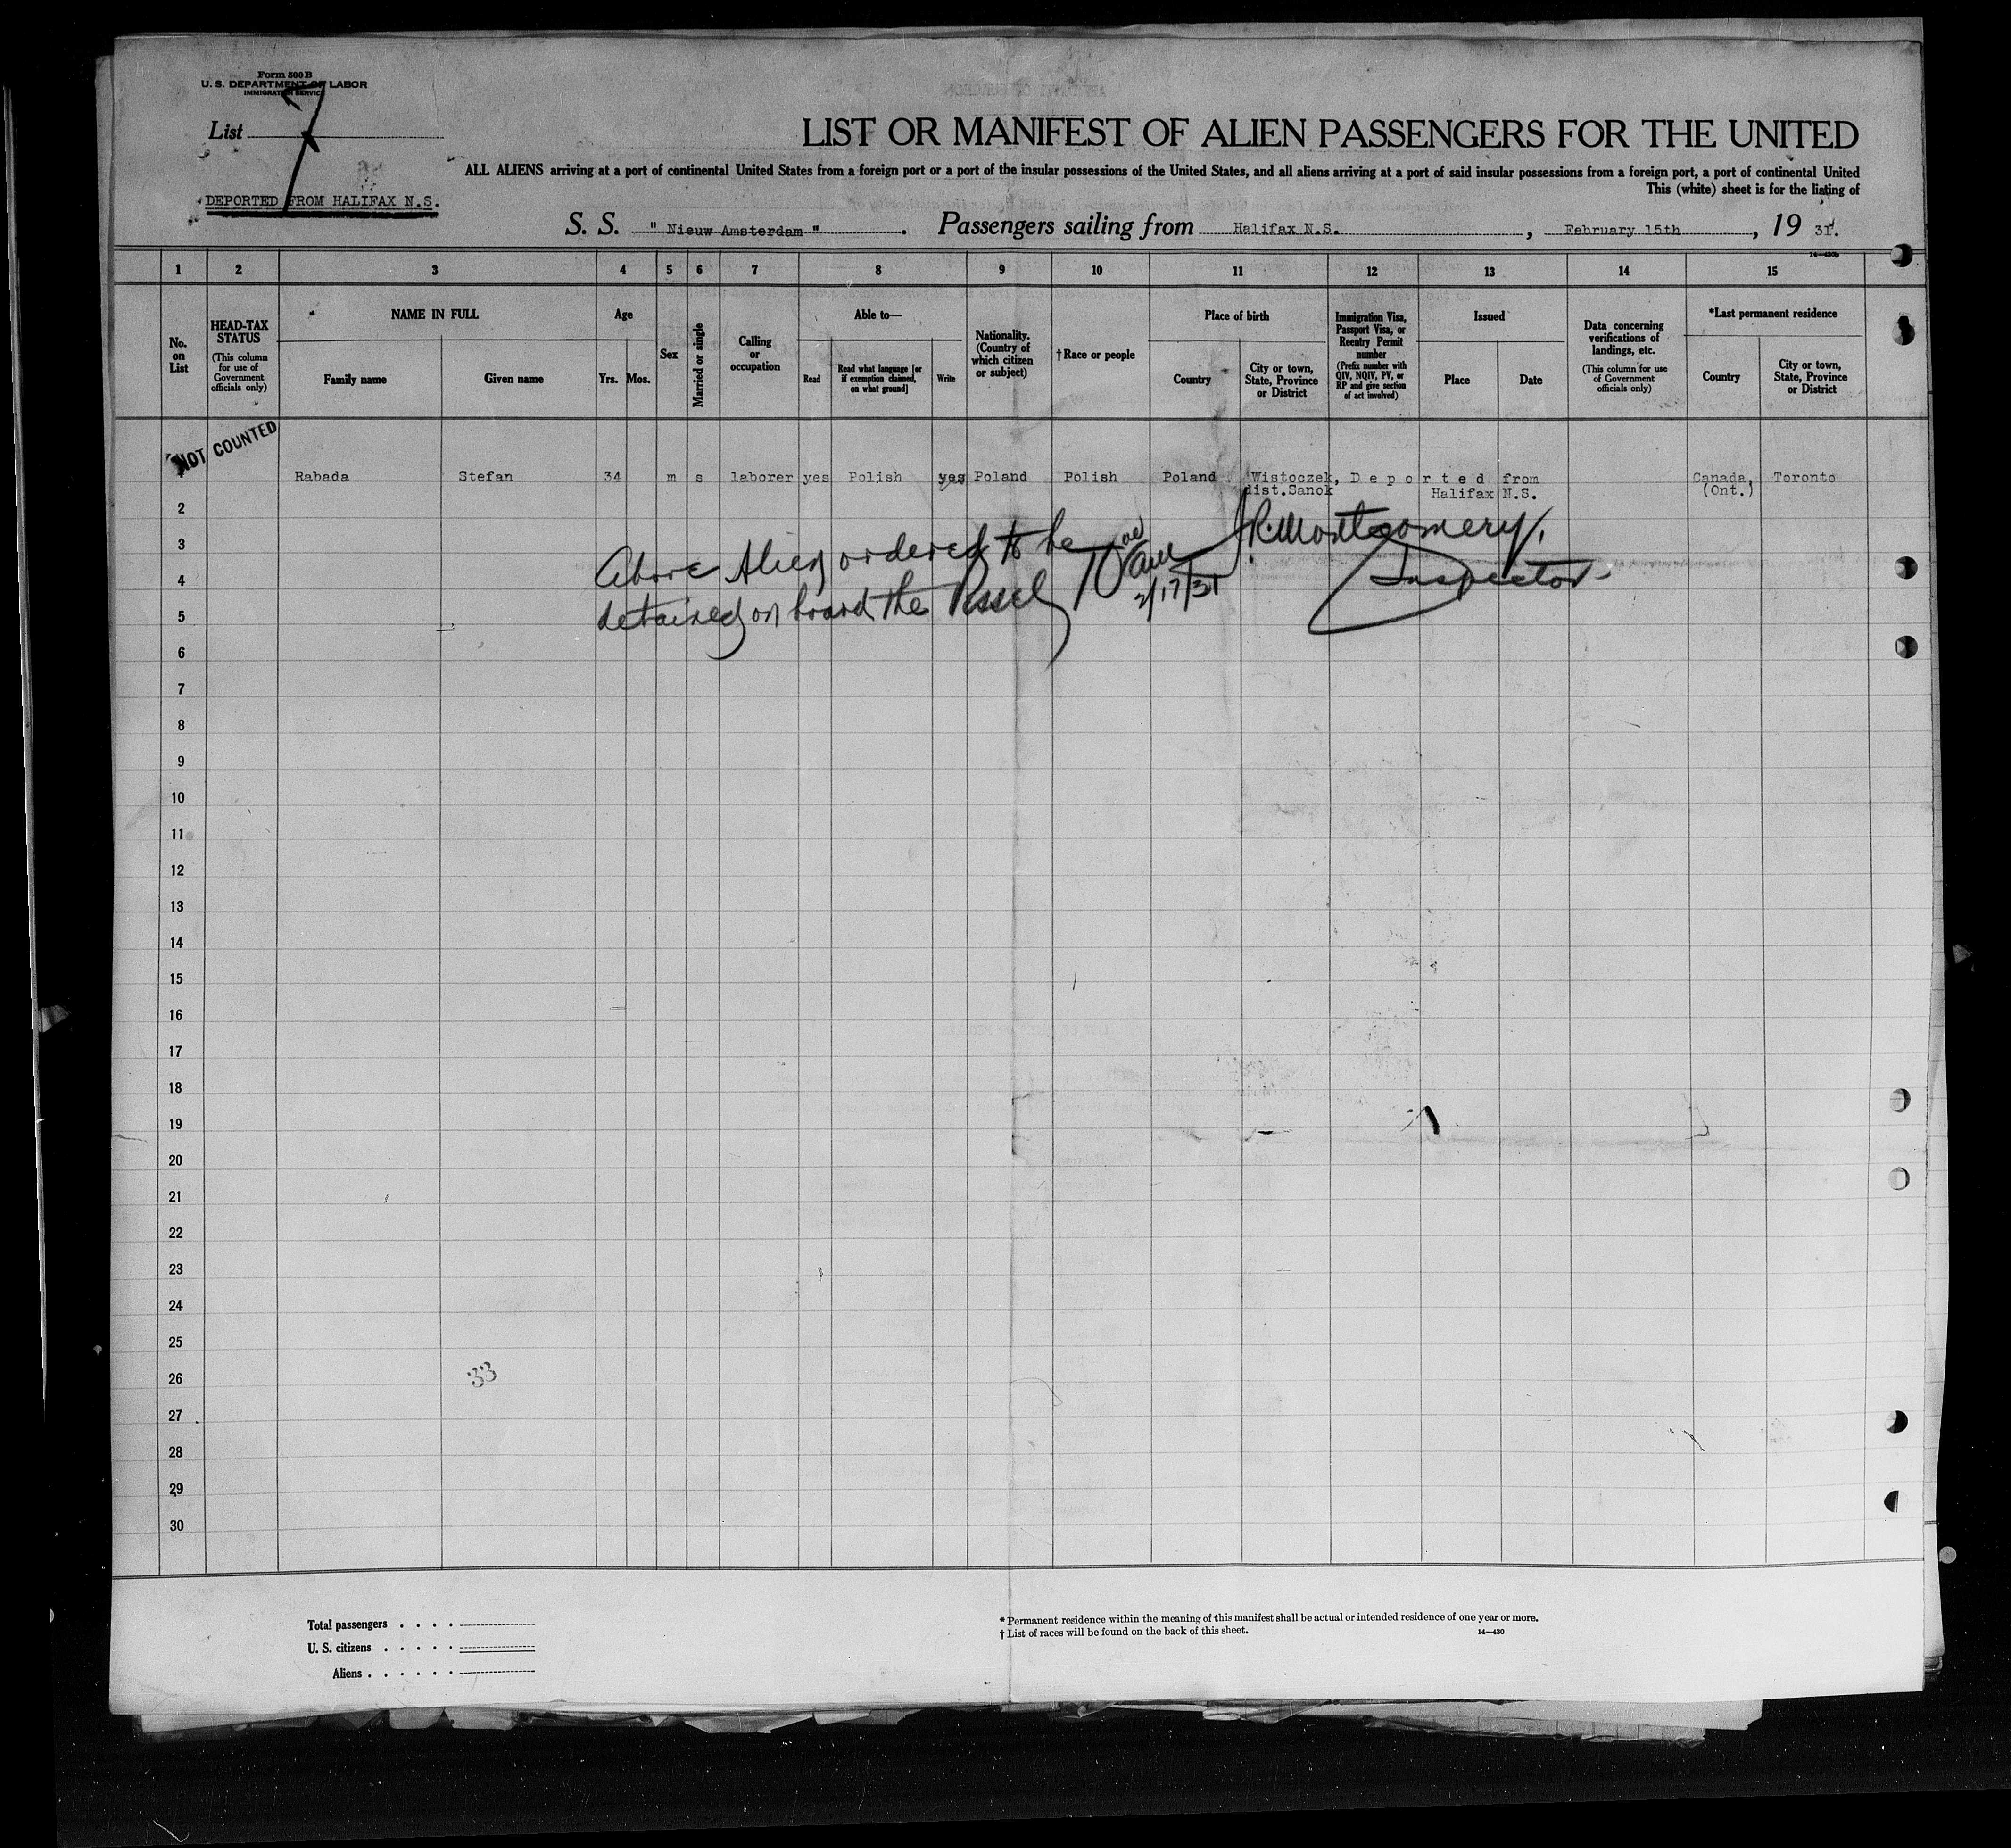 Form 500 B
U. S. DEPARTMENT OF LABOR
IMMIGRATION SERVICE
List 7
DEPORTED FROM HALIFAX N.S.
LIST OR MANIFEST OF ALIEN PASSENGERS FOR THE UNITED
ALL ALIENS arriving at a port of continental United States from a foreign port or a port of the insular possessions of the United States, and all aliens arriving at a port of said insular possessions from a foreign port, a port of continental United
This (white) sheet is for the listing of
S. S. " Nieuw Amsterdam " . Passengers sailing from Halifax N.S. , February 15th , 19 31.
14—430b
1 2 3 4 5 6 7 8 9 10 11 12 13 14 15
No. on List
HEAD-TAX STATUS
(This column for use of Government officials only)
NAME IN FULL
Family name
Given name
Age
Yrs.
Mos.
Sex
Married or single
Calling or occupation
Able to—
Read
Read what language [or if exemption claimed, on what ground]
Write
Nationality. (Country of which citizen or subject)
†Race or people
Place of birth
Country
City or town, State, Province or District
Immigration Visa, Passport Visa, or Reentry Permit number
(Prefix number with QIV, NQIV, PV, or RP and give section of act involved)
Issued
Place
Date
Data concerning verifications of landings, etc.
(This column for use of Government officials only)
*Last permanent residence
Country
City or town, State, Province or District
NOT COUNTED
Rabada Stefan 34 m s laborer yes Polish yes Poland Polish Poland Wistoczek, Deported from Canada, Toronto
dist.Sanok Halifax N.S. (Ont.)
2
3
Above Alien ordered to be J.R. Montgomery,
4
detained on board the Vessel 2/17/31 Inspector
5
6
7
8
9
10
11
12
13
14
15
16
17
18
19
20
21
22
23
24
25
26
33
27
28
29
30
Total passengers . . . .
U. S. citizens . . . . .
Aliens . . . . . .
* Permanent residence within the meaning of this manifest shall be actual or intended residence of one year or more.
† List of races will be found on the back of this sheet. 14—430